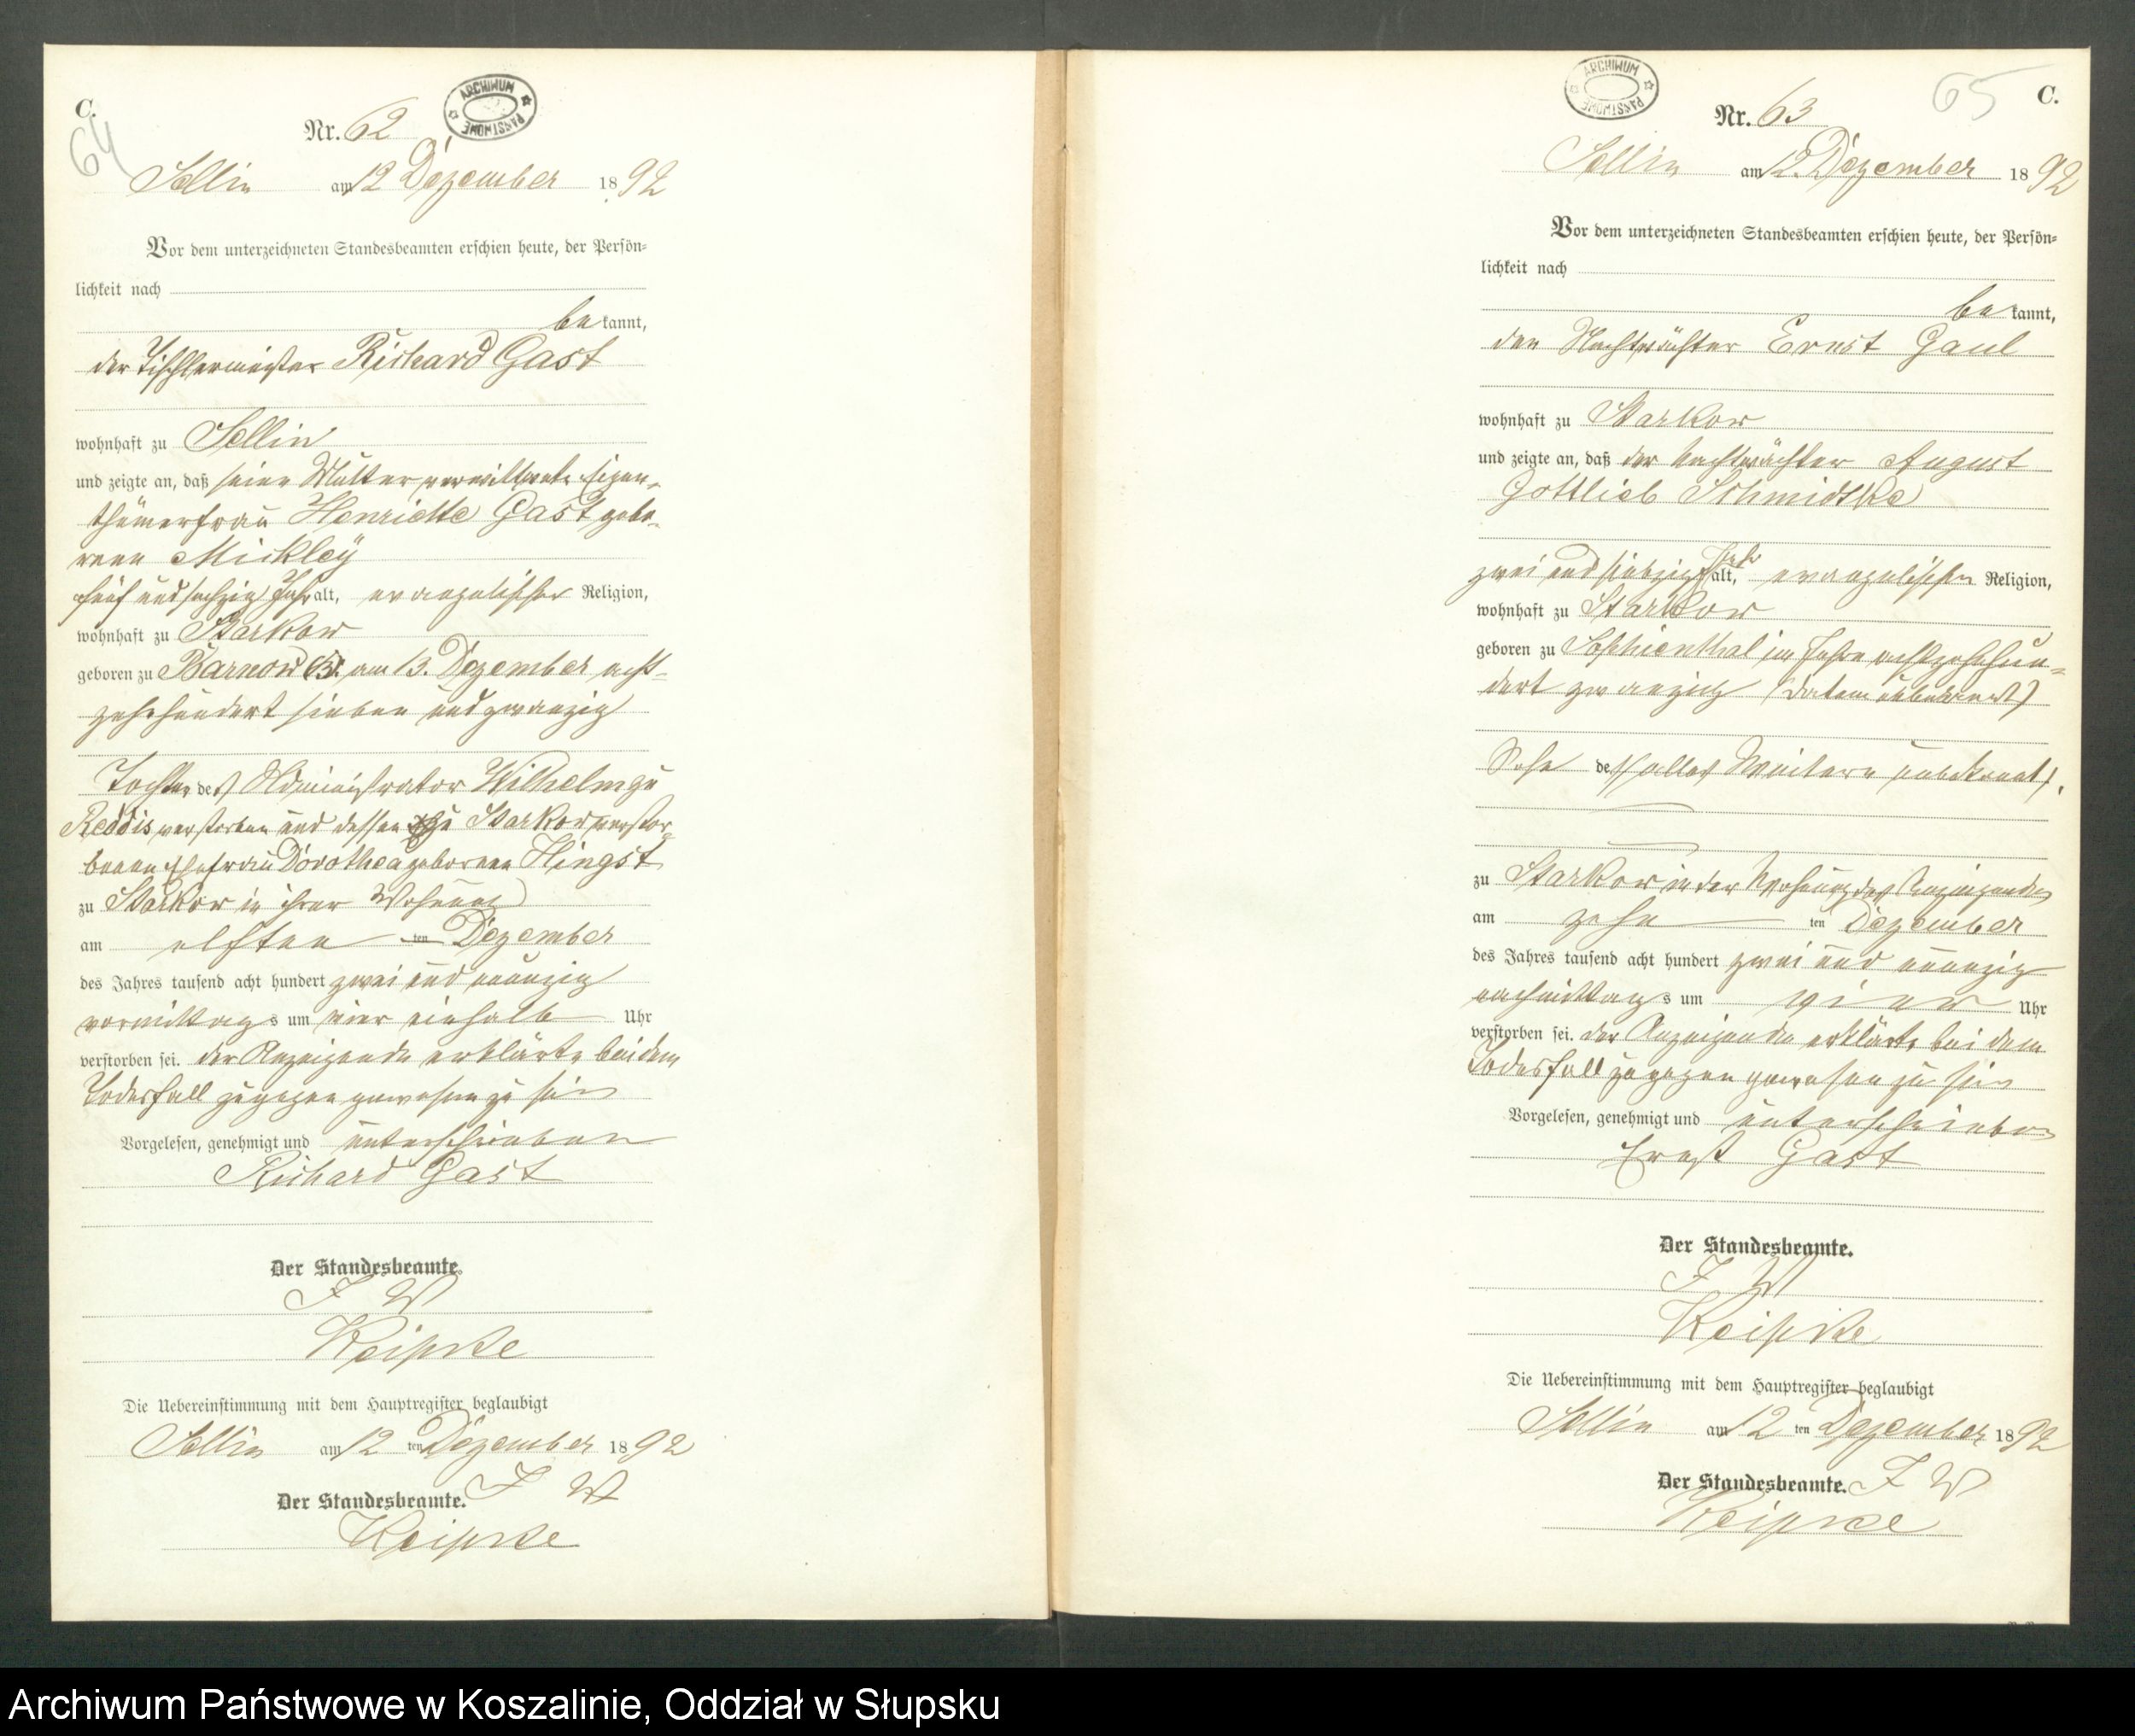 C.
64
Nr. 62
ARCHIWUM PAŃSTWOWE
Sellin am 12 Dezember 1892
Vor dem unterzeichneten Standesbeamten erschien heute, der Persön-
lichkeit nach
be kannt,
der Tischlermeister Richard Gast
wohnhaft zu Sellin
und zeigte an, daß seine Mutter verwittwete Eigen-
thümerfrau Henriette Gast gebo-
rene Mickley
fünf und sechzig Jahr alt, evangelischer Religion,
wohnhaft zu Starkow
geboren zu Barnow B. am 13. Dezember acht-
zehnhundert sieben und zwanzig
Tochter des Administrator Wilhelm zu
Reddis verstorben und dessen zu Starkow verstor-
benen Ehefrau Dorothea geborene Hingst
zu Starkow in ihrer Wohnung
am elften ten Dezember
des Jahres tausend acht hundert zwei und neunzig
vormittags um vier einhalb Uhr
verstorben sei. der Anzeigende erklärte bei dem
Todesfall zugegen gewesen zu sein
Vorgelesen, genehmigt und unterschrieben
Richard Gast
Der Standesbeamte.
I W
Keipke
Die Uebereinstimmung mit dem Hauptregister beglaubigt
Sellin am 12 ten Dezember 1892
Der Standesbeamte. I W
Keipke
ARCHIWUM PAŃSTWOWE
65
C.
Nr. 63
Sellin am 12. Dezember 1892
Vor dem unterzeichneten Standesbeamten erschien heute, der Persön-
lichkeit nach
be kannt,
der Nachtwächter Ernst Gaul
wohnhaft zu Starkow
und zeigte an, daß der Nachtwächter August
Gottlieb Schmidtke
zwei und siebzig Jahr alt, evangelischer Religion,
wohnhaft zu Starkow
geboren zu Sophienthal im Jahre achtzehnhun-
dert zwanzig (Datum unbekannt)
Sohn des (alles Weitere unbekannt).
zu Starkow in der Wohnung des Anzeigenden
am zehn ten Dezember
des Jahres tausend acht hundert zwei und neunzig
nachmittags um vier Uhr
verstorben sei. der Anzeigende erklärte bei dem
Todesfall zugegen gewesen zu sein
Vorgelesen, genehmigt und unterschrieben
Ernst Gast
Der Standesbeamte.
I W
Keipke
Die Uebereinstimmung mit dem Hauptregister beglaubigt
Sellin am 12 ten Dezember 1892
Der Standesbeamte. I W
Keipke
Archiwum Państwowe w Koszalinie, Oddział w Słupsku